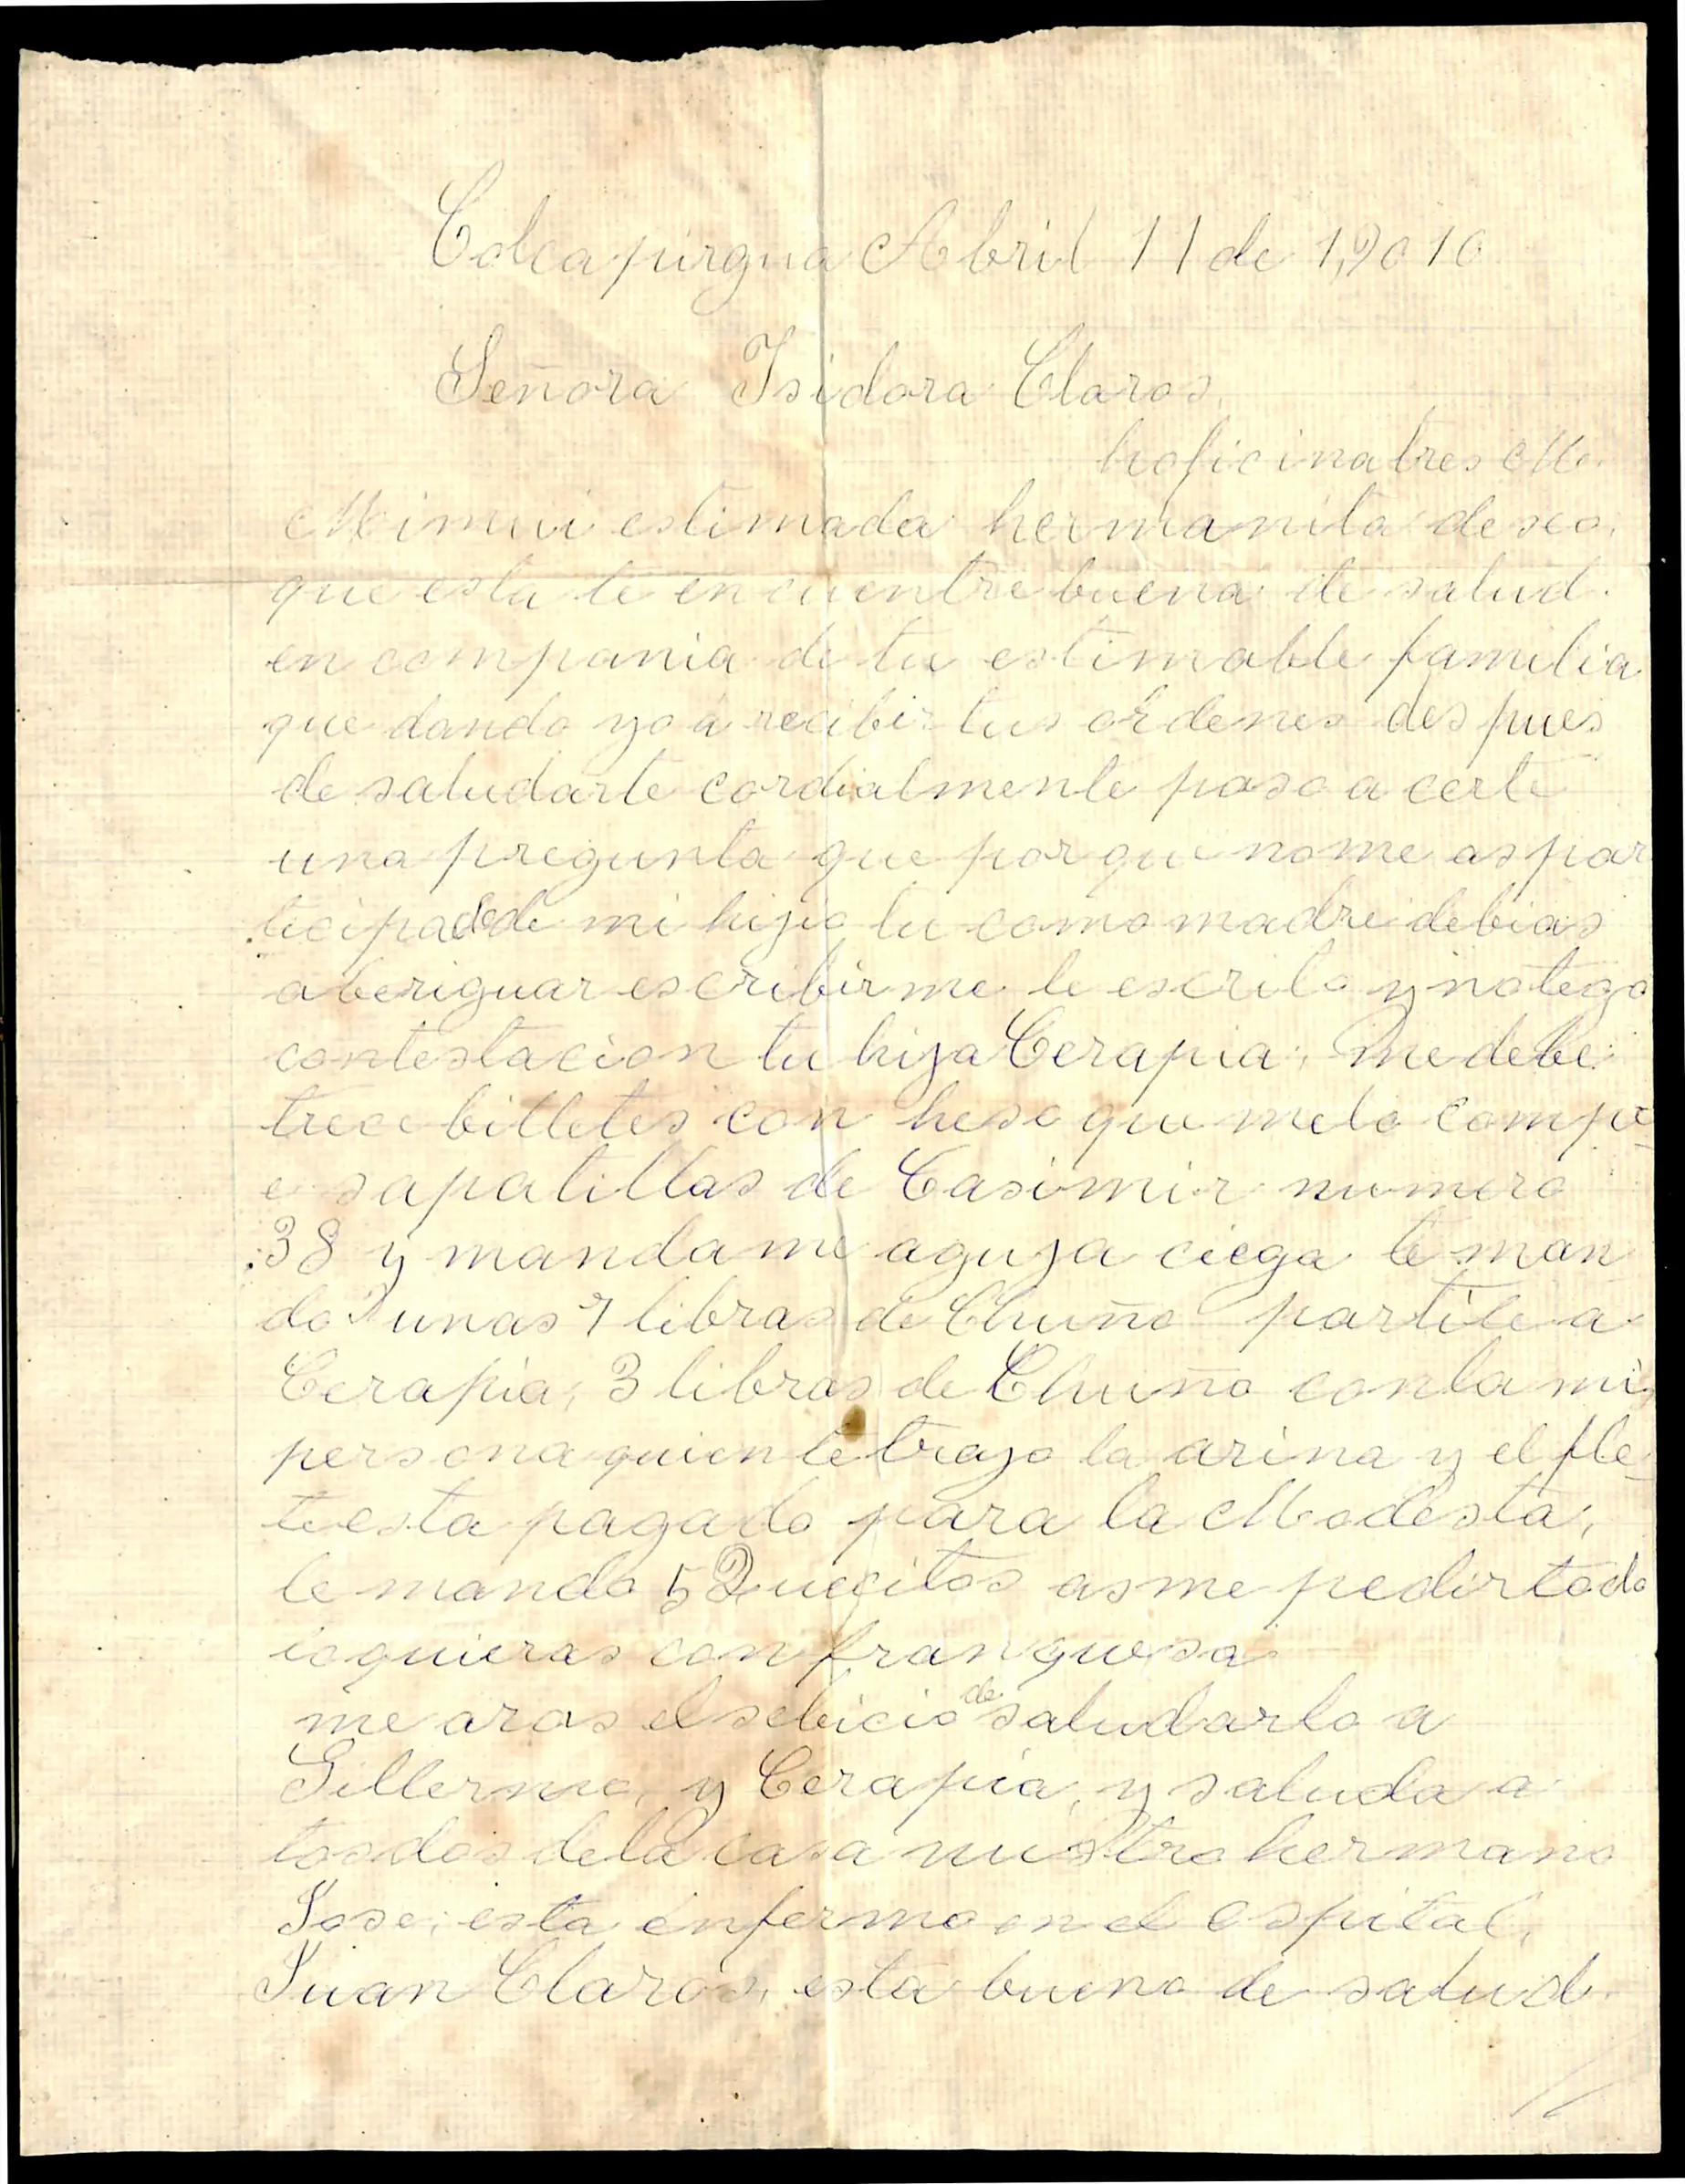 Colcapirgua Abril 11 de 1,9010
Señora Isidora Claros.
hoficina tres Ma.
Mi mui estimada hermanita deseo.
que esta te encuentre buena de salud.
en compania de tu estimable familia
que dando yo a recibir tus ordenes des pues
de saludarte cordialmente paso a certe
una pregunta que por que no me as par
ticipado de mi hijo tu como madre debias
aberiguar escribirme le escrito y no tego
contestacion tu hija Cerapia, me debe
trece billetes con heso que me lo compr
e sapatillas de Casimir numero
38 y manda me aguja ciega te man
do unas 7 libras de Chuño partile a
Cerapia, 3 libras de Chuño con la mis
persona quien te trajo la arina y el fle
te esta pagado para la Modesta,
le mando 5 Quecitos as me pedir todo
lo quieras con franquesa
me aras el sebicio de saludarlo a
Gillermo, y Cerapia, y saluda a
tosdos de la casa nuestro hermano
Jose, esta enfermo en el ospital,
Juan Claros, esta bueno de salud.